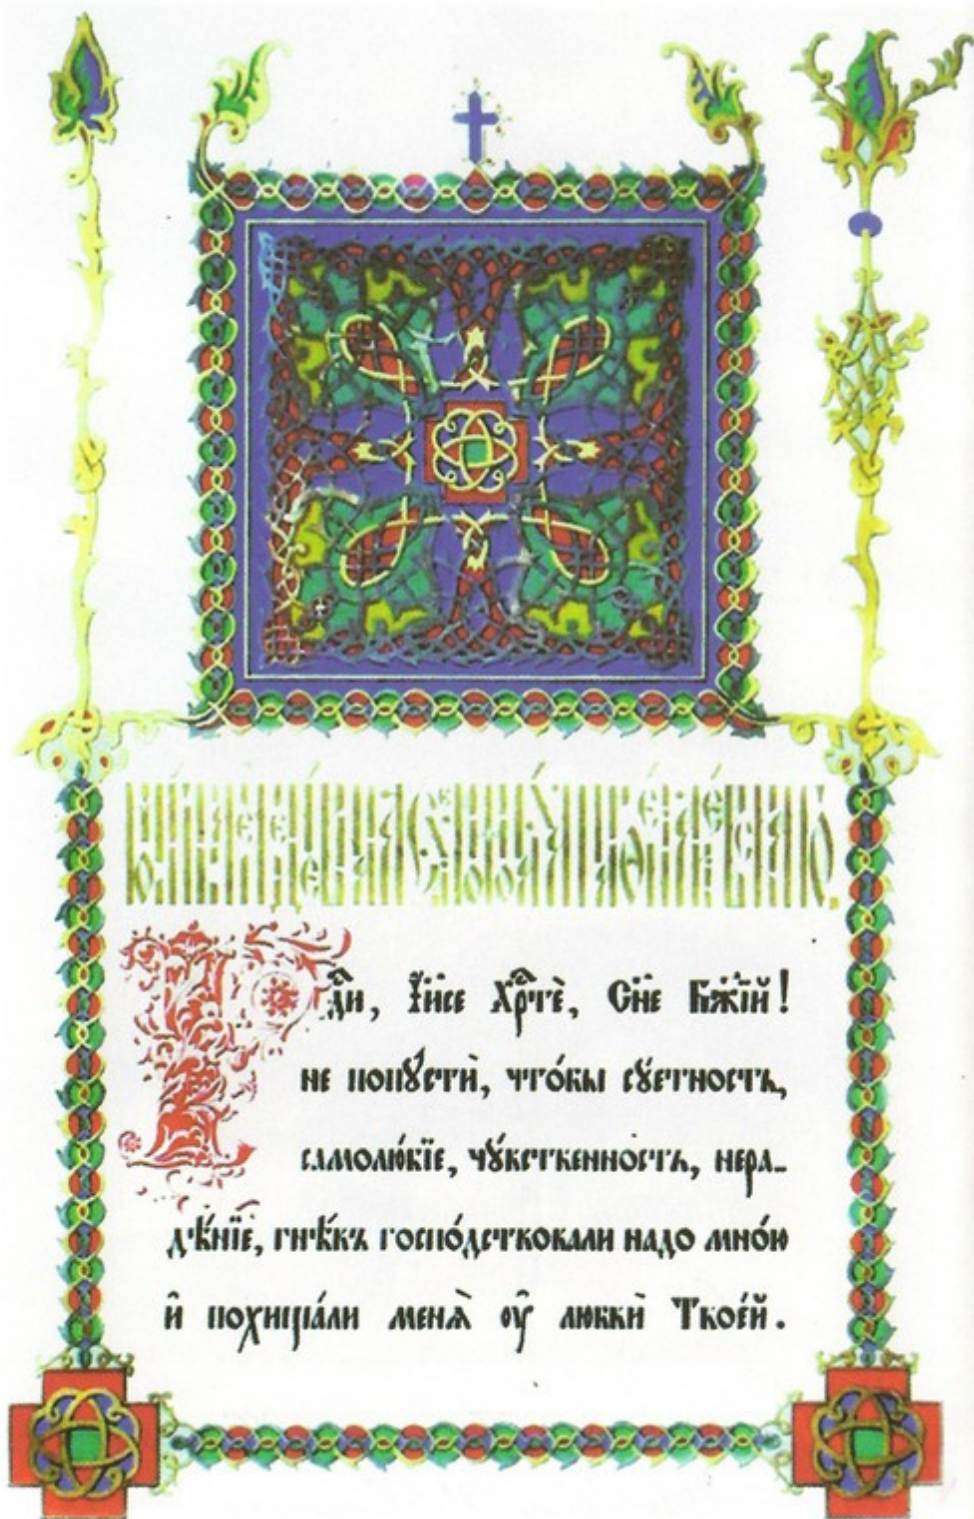 Гдⷭ҇и, І҆и҃се Хрⷭ҇тѐ, Сн҃е Бж҃їй!
не попꙋстѝ, что́бы сꙋетность,
самолю́бїе, чꙋ́вственность, нера-
дѣ́нїе, гнѣ́въ госпо́дствовали надо мно́ю
и҆ похища́ли менѧ̀ ᲂу҆ любвѝ Твое́й.